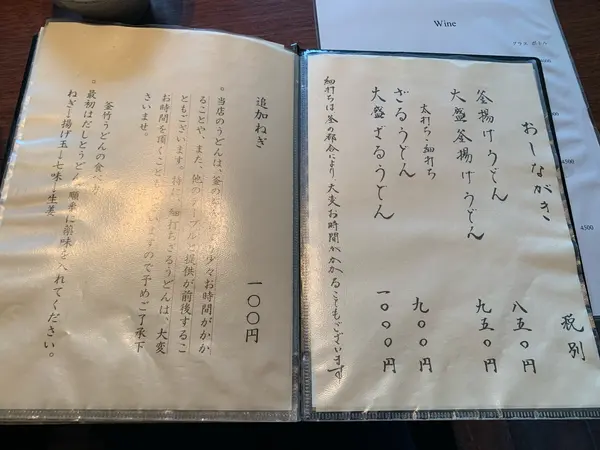 おしながき
税別
釜揚げうどん 八五〇円
大盛釜揚げうどん 九五〇円
太打ち・細打ち
ざるうどん 九〇〇円
大盛ざるうどん 一〇〇〇円
細打ちは釜の都合により、大変お時間がかかることもございます
追加ねぎ 一〇〇円
。当店のうどんは、釜の
少々お時間がかか
ることや、また、他のテーブルと提供が前後するこ
ともございます。特に、細打ちざるうどんは、大変
お時間を頂くことも
いますので予めご了承下
さいませ。
釜竹うどんの食べ
。最初はだしとうどん
順番に薬味を入れてください。
ねぎ→揚げ玉→七味→生姜
Wine
グラス ボトル
4500
4500